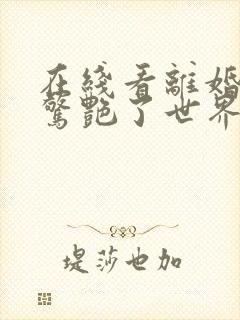 在綫看離婚
驚艷了世界
堤莎也加